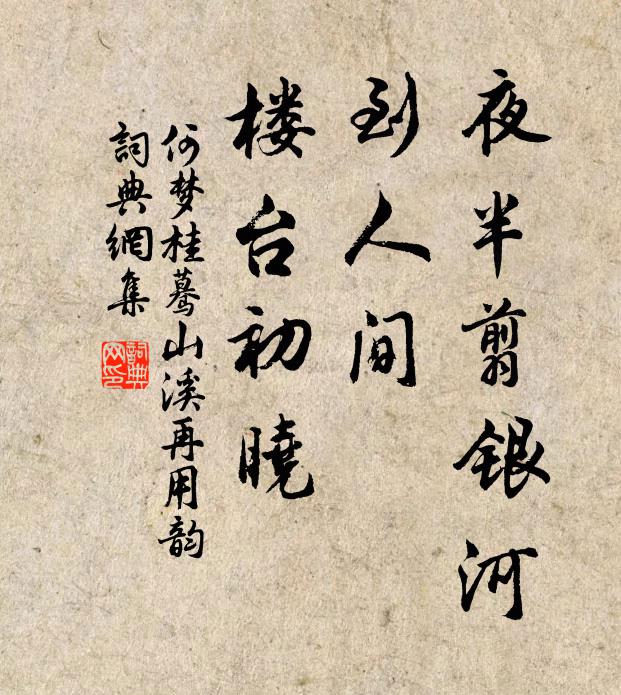 夜半翦银河
到人间
楼台初曉
何梦桂蓦山溪再用韵
詞典網集
詞典网印